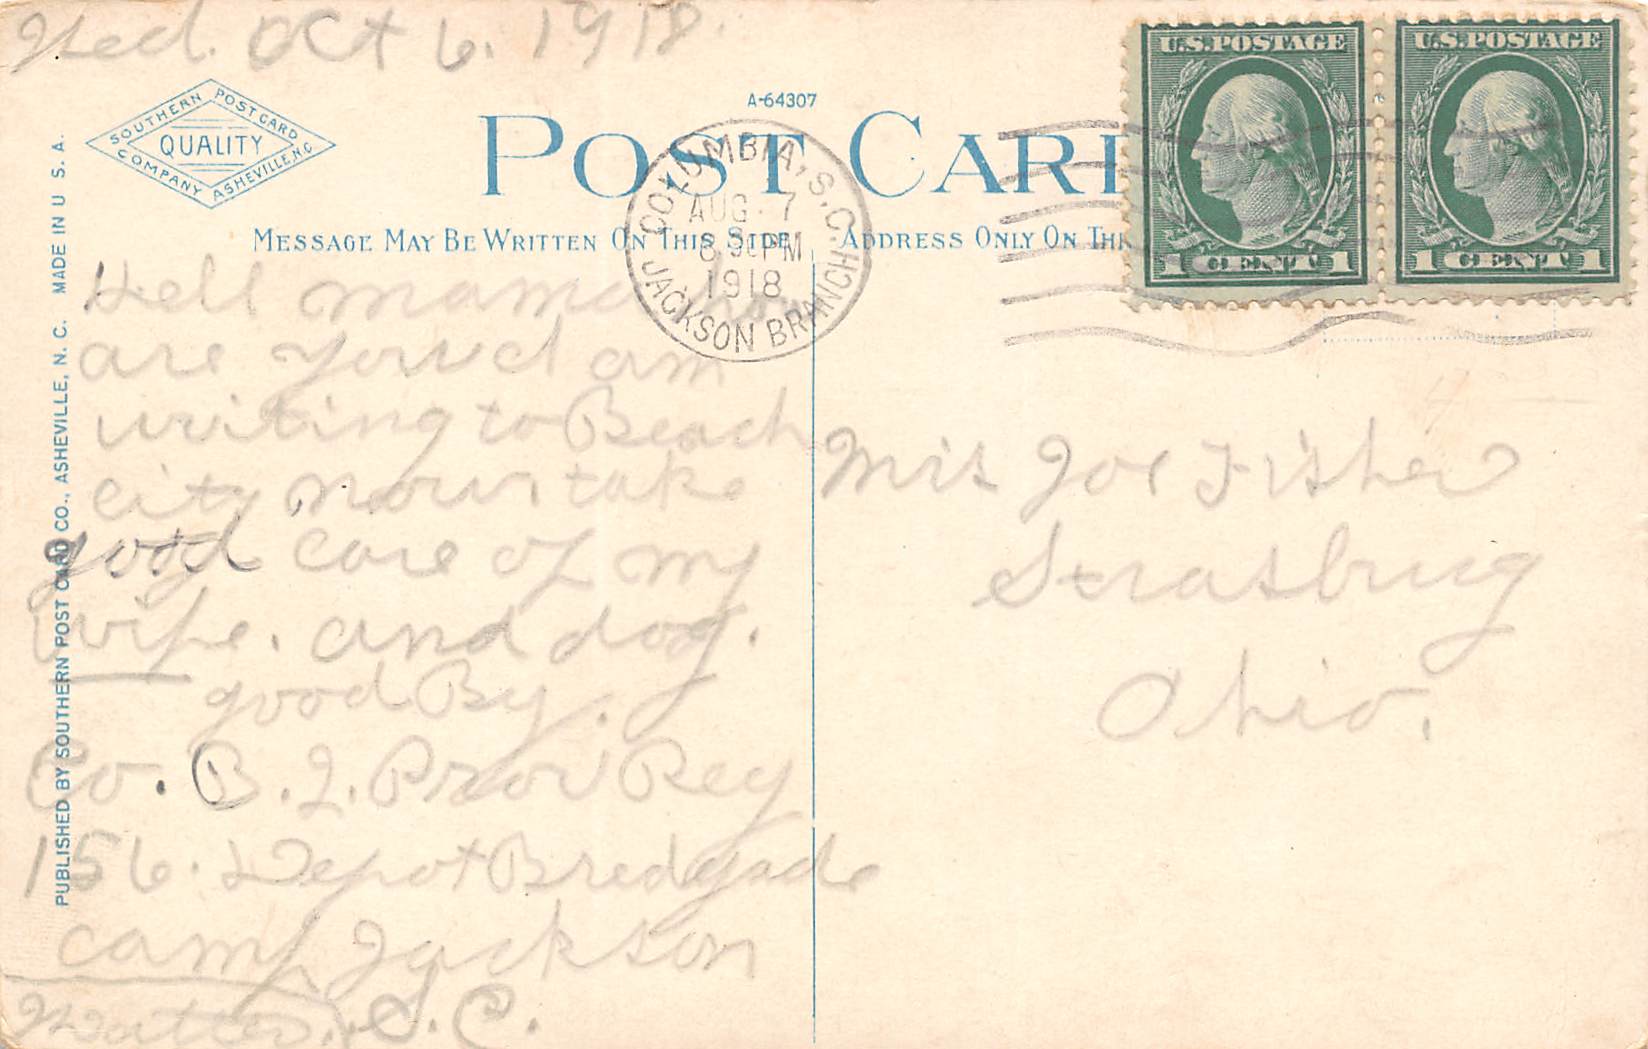 Wed. Oct 6. 1918.
SOUTHERN POST CARD
QUALITY
COMPANY ASHEVILLE, N.C.
A-64307
POST CAR
MESSAGE MAY BE WRITTEN ON THIS SIDE
ADDRESS ONLY ON THI
U.S. POSTAGE
1 CENT 1
U.S. POSTAGE
1 CENT 1
COLUMBIA, S.C.
AUG 7
8 30 PM
1918
JACKSON BRANCH
PUBLISHED BY SOUTHERN POST CARD CO., ASHEVILLE, N. C. MADE IN U. S. A.
Hell mama ho
are you I am
writing to Beach
city now take
good care of my
wife. and dog.
good By.
Co. B. 2. Prov Reg
156. Depot Bredgade
camp Jackson
Walter. S.C.
Mis Joe Fisher
Strasbrug
Ohio.